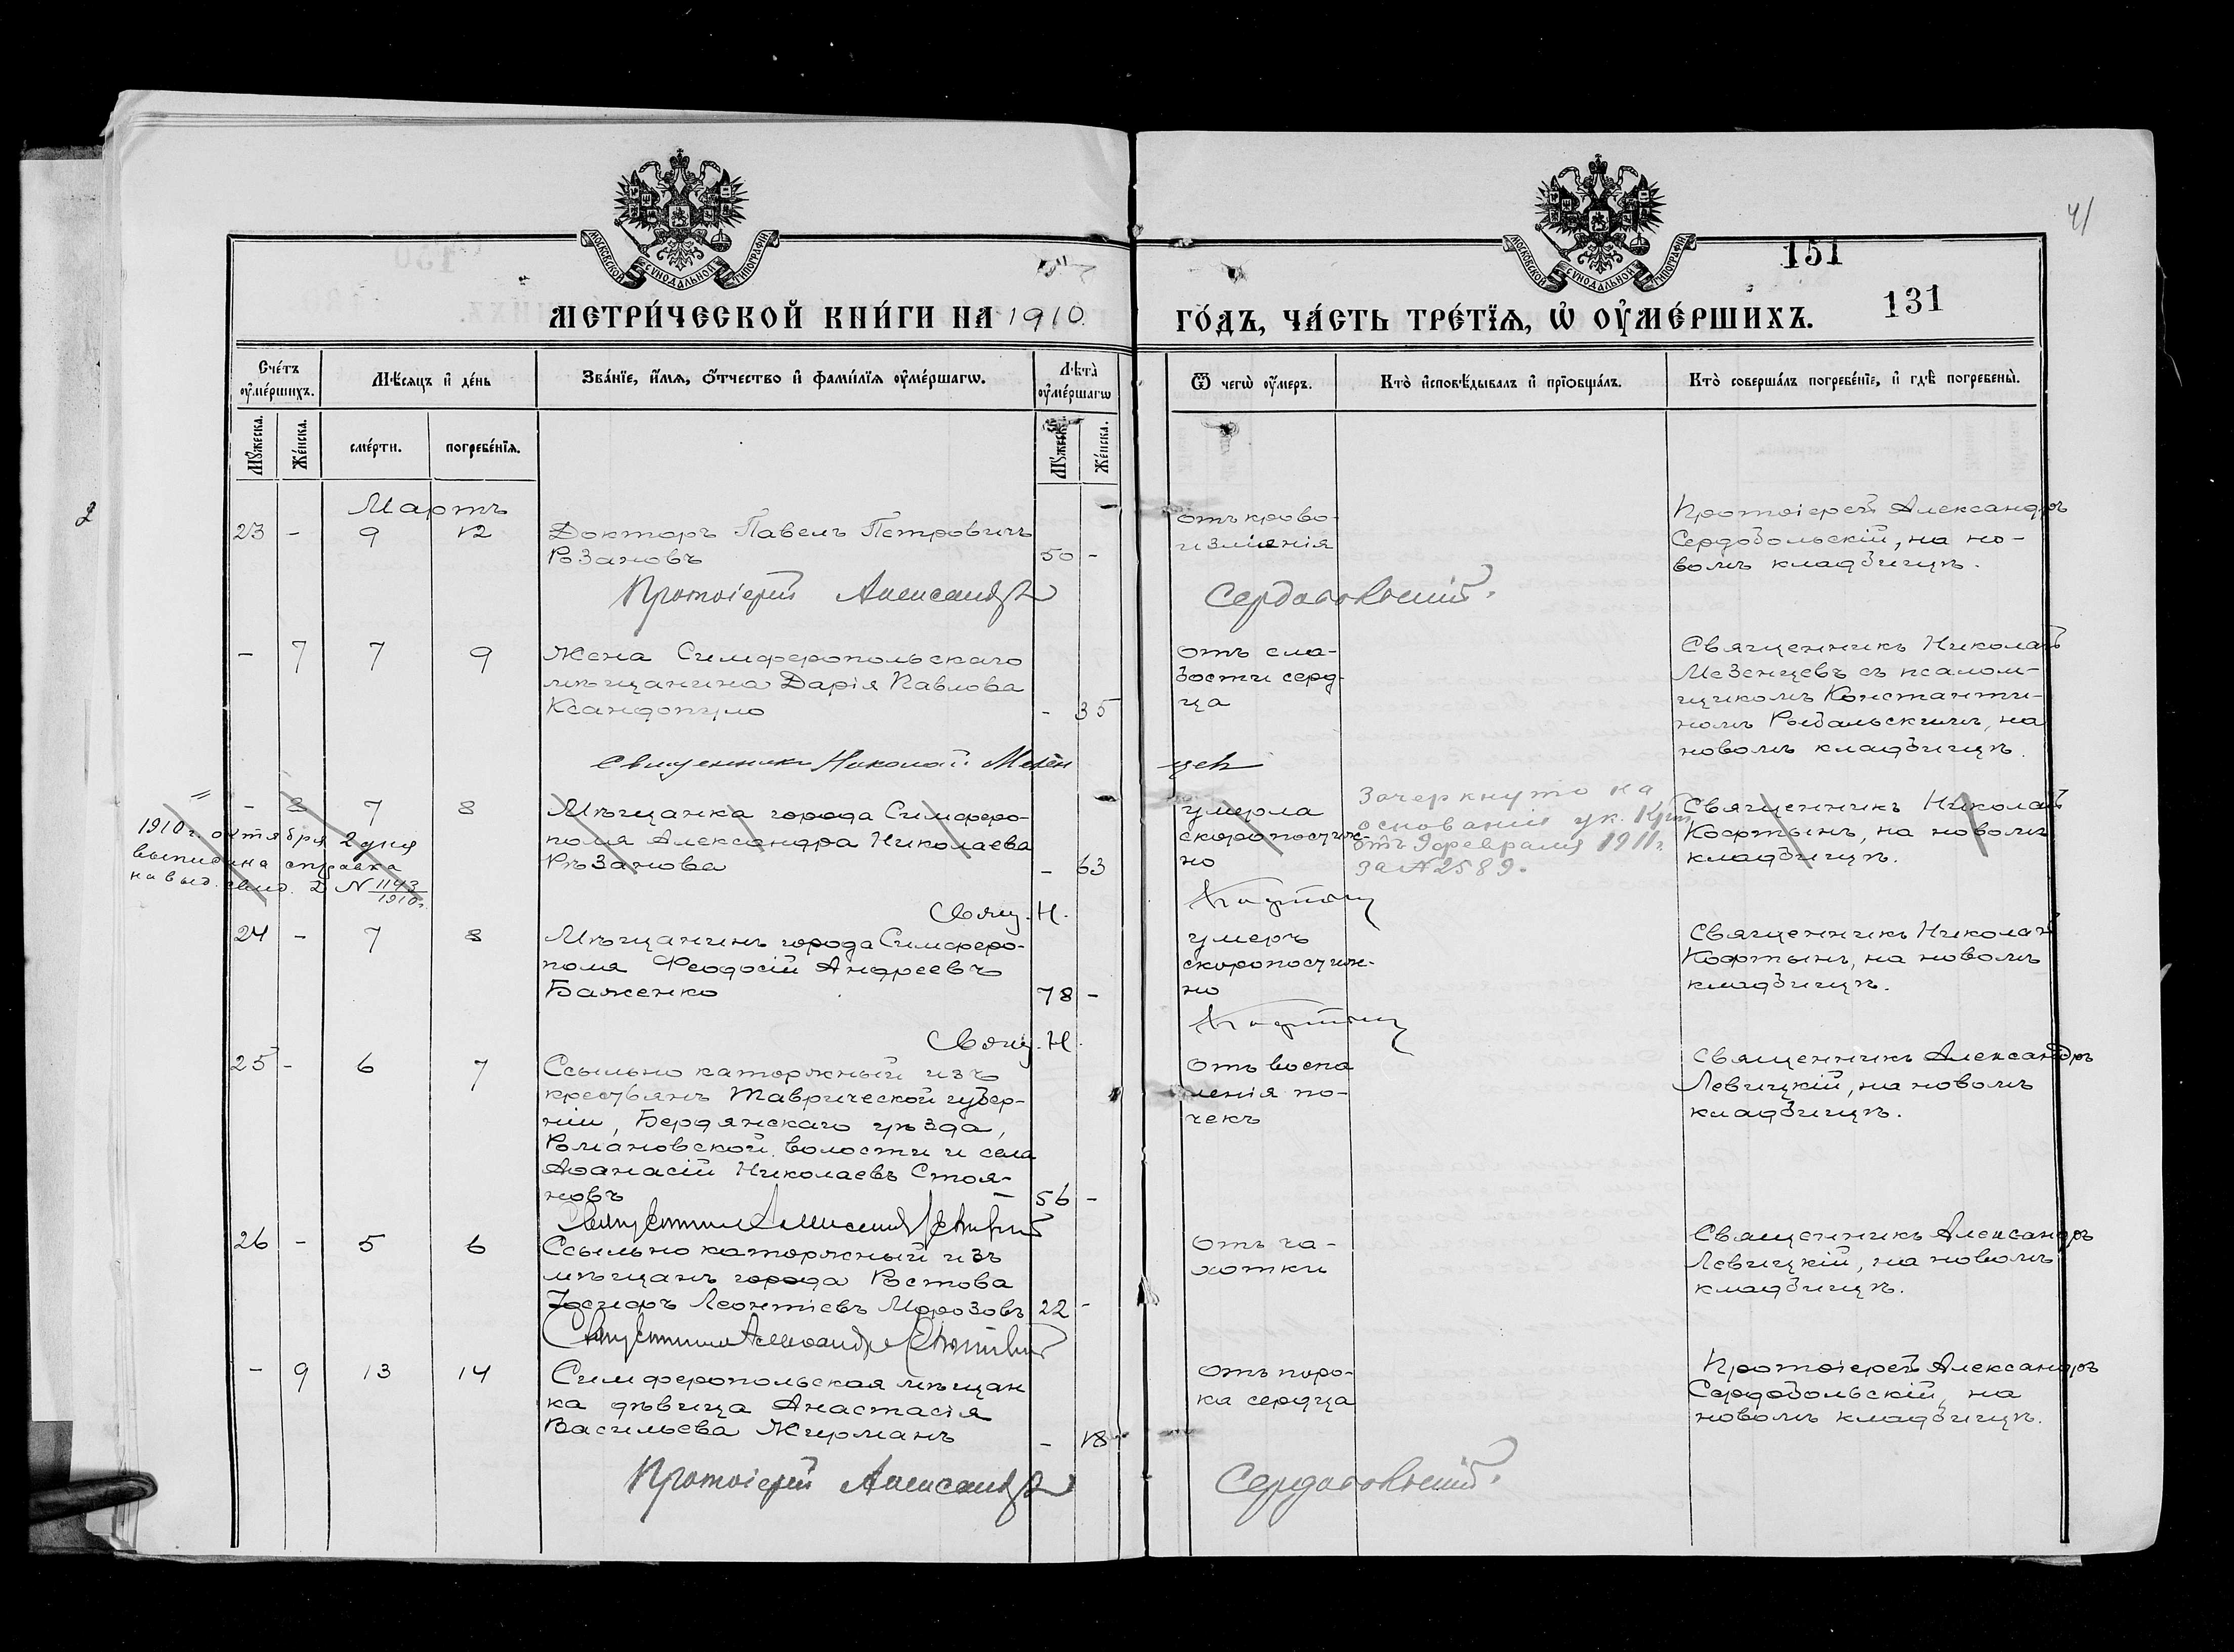 41
МОСКОВСКОЙ СѴНОДАЛЬНОЙ ТИПОГРАФІИ
МОСКОВСКОЙ СѴНОДАЛЬНОЙ ТИПОГРАФІИ
151
131
МЕТРИ́ЧЕСКОЙ КНИ́ГИ НА 1910.
ГО́ДЪ, ЧА́СТЬ ТРЕ́ТЇѦ, Ѡ҆ ОУ҆МЕ́РШИХЪ.
Сче́тъ оу҆ме́ршихъ.
Мѣ́сяцъ и҆ де́нь
Зва́нїе, и҆́мѧ, ѻ҆́тчество и҆ фами́лїѧ оу҆ме́ршагѡ.
Лѣ́та̀ оу҆ме́ршагѡ
Ѿ чегѡ̀ оу҆́меръ.
Кто̀ и҆сповѣ́дывалъ и҆ прїѡбща́лъ.
Кто̀ соверша́лъ погребе́нїе, и҆ гдѣ̀ погребены̀.
Мꙋ́жеска.
Же́нска.
сме́рти.
погребе́нїѧ.
Мꙋ́жеска.
Же́нска.
Мартъ
23 - 9 12
Докторъ Павелъ Петровичъ
Розановъ
50 -
отъ крово-
излиянія
Протоіерей Александръ
Сердобольскій, на но-
вомъ кладбищѣ.
Протоіерей Александръ Сердобольскій.
- 7 7 9
Жена Симферопольскаго
мѣщанина Дарія Павлова
Ксандопуло
- 35
отъ сла-
бости серд-
ца
Священникъ Николай
Мезенцевъ съ псалом-
щикомъ Константи-
номъ Рыбальскимъ, на
новомъ кладбищѣ.
Священникъ Николай Мезенцевъ
- 8 7 8
1910 г. октября 2 дня
выписана справка
на выд. свид. Д № 1143/1910 г.
Мѣщанка города Симферо-
поля Александра Николаева
Рѣзанова
- 63
умерла
скоропостиж-
но
Зачеркнуто на
основаніи ук. Кон.
отъ 9 февраля 1911 г.
за № 2589.
Священникъ Николай
Кофтынъ, на новомъ
кладбищѣ.
Свящ. Н. Кофтынъ
24 - 7 8
Мѣщанинъ города Симферо-
поля Феодосій Андреевъ
Баженко
78 -
умеръ
скоропостиж-
но
Священникъ Николай
Кофтынъ, на новомъ
кладбищѣ.
Свящ. Н. Кофтынъ
25 - 6 7
Ссыльно каторжный изъ
крестьянъ Таврической губер-
ніи, Бердянскаго уѣзда,
Романовской волости и села
Аѳанасій Николаевъ Стоя-
новъ
56 -
Отъ воспа
ленія по-
чекъ
Священникъ Александръ
Левицкій, на новомъ
кладбищѣ.
Священникъ Александръ Левицкій
26 - 5 6
Ссыльно каторжный изъ
мѣщанъ города Ростова
Іосифъ Леонтіевъ Морозовъ
22 -
Отъ ча-
хотки
Священникъ Александръ
Левицкій, на новомъ
кладбищѣ.
Священникъ Александръ Левицкій
- 9 13 14
Симферопольская мѣщан
ка дѣвица Анастасія
Васильева Жирманъ
- 18
Отъ поро-
ка сердца
Протоіерей Александръ
Сердобольскій, на
новомъ кладбищѣ.
Протоіерей Александръ Сердобольскій.